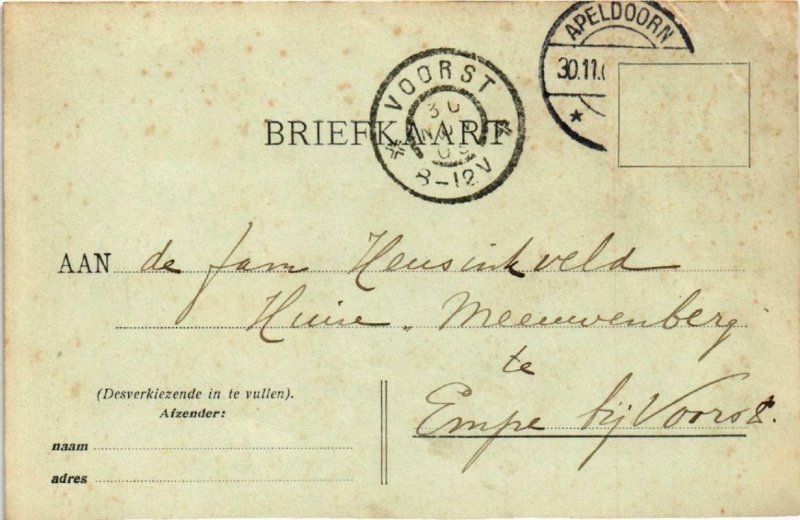 APELDOORN
30.11.
VOORST
30
NOV
8-12V
BRIEFKAART
AAN de fam Heusinkveld
Huize „Meeuwenberg
te
Empe bij Voorst.
(Desverkiezende in te vullen).
Afzender:
naam
adres